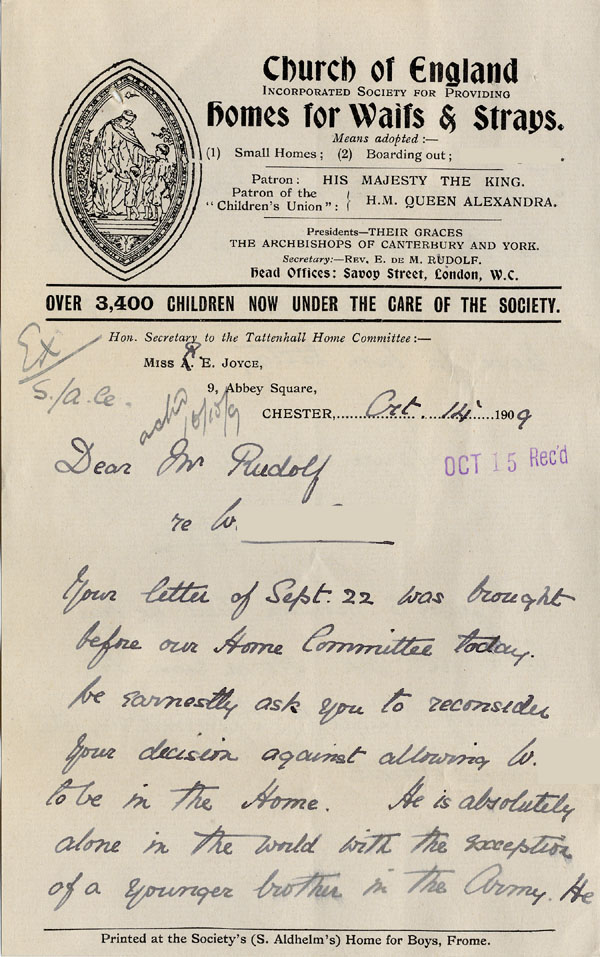 Church of England
Incorporated Society for Providing
Homes for Waifs & Strays.
Means adopted :—
(1) Small Homes; (2) Boarding out;
Patron: HIS MAJESTY THE KING.
Patron of the "Children's Union": { H.M. QUEEN ALEXANDRA.
Presidents—THEIR GRACES
THE ARCHBISHOPS OF CANTERBURY AND YORK.
Secretary:—REV. E. DE M. RUDOLF.
Head Offices: Savoy Street, London, W.C.
OVER 3,400 CHILDREN NOW UNDER THE CARE OF THE SOCIETY.
Hon. Secretary to the Tattenhall Home Committee:—
Ex
MISS E. JOYCE,
S./a.Ce.
9, Abbey Square,
ackd 16/10/9
CHESTER, Oct. 14 1909
Dear Mr Rudolf
OCT 15 Rec'd
re W.
Your letter of Sept. 22 was brought
before our Home Committee today.
We earnestly ask you to reconsider
your decision against allowing W.
to be in the Home. He is absolutely
alone in the world with the exception
of a younger brother in the Army. He
Printed at the Society's (S. Aldhelm's) Home for Boys, Frome.